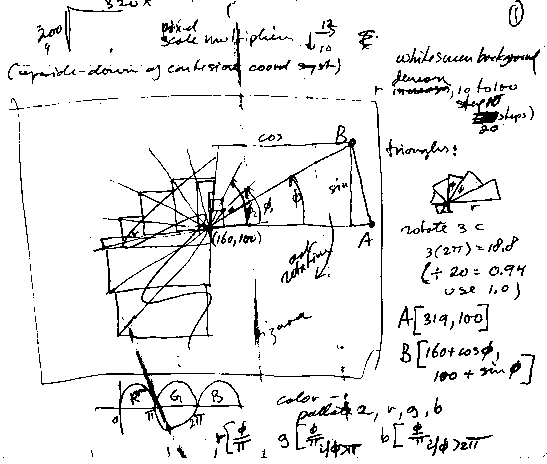 320 x
200
pixel
scale multiplier ↓ 12/10
(upside-down of cartesian coord syst)
1
white screen background
r increases, 10 to 100
step 10
steps)
20
triangles:
cos
B
ϕ
ϕ
sin
(160,100)
A
rotation
r
rotate 3 c
3(2π) = 18.8
(÷ 20 = 0.94
use 1.0)
A[319,100]
B[160+cosϕ,
100+sinϕ]
R G B
0 π 2π
color
pallet 2, r, g, b
r[ϕ/π g[ϕ/π if ϕ>π b[ϕ/π if ϕ>2π